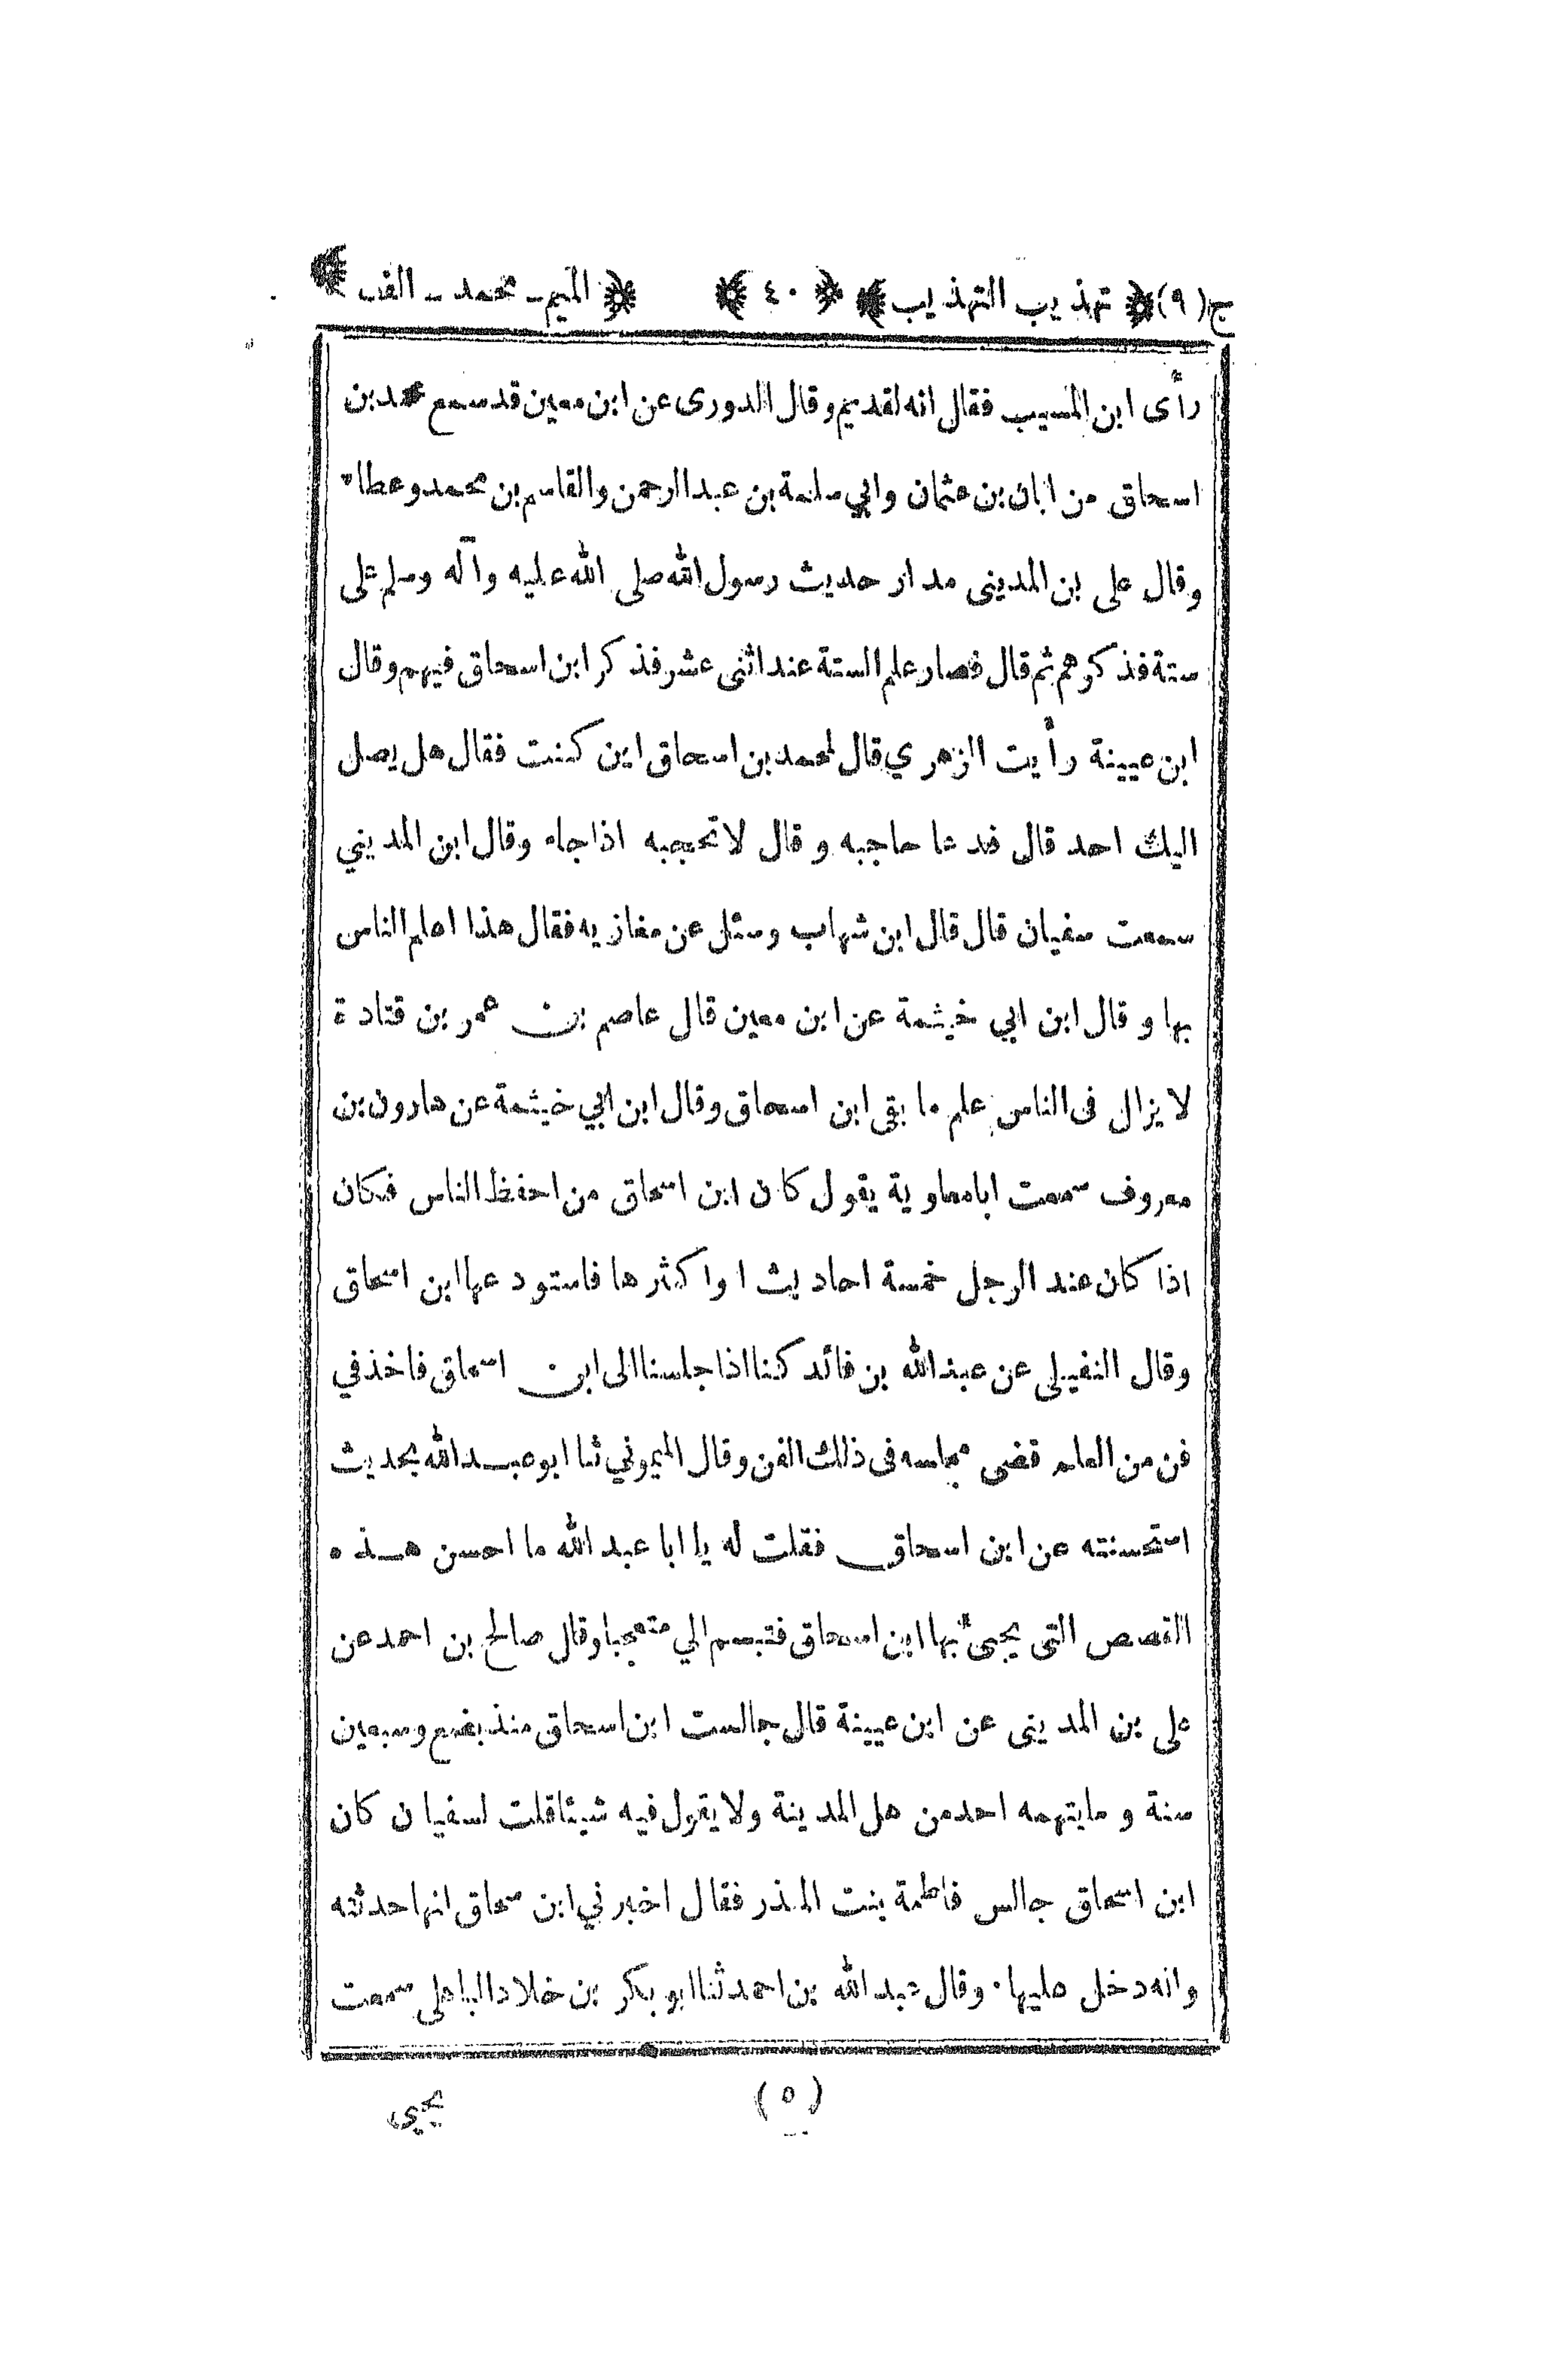 ج(٩) تهذيب التهذيب ٤٠ الميم ـ محمد ـ الف
رأى ابن المسيب فقال انه لقديم وقال الدورى عن ابن معين قد سمع محمد بن
اسحاق من ابان بن عثمان وابي سلمة بن عبد الرحمن والقاسم بن محمد وعطاء
وقال على بن المدينى مدار حديث رسول الله صلى الله عليه وآله وسلم على
ستة فذكرهم ثم قال فصار علم الستة عند اثنى عشر فذكر ابن اسحاق فيهم وقال
ابن عيينة رأيت الزهري قال لمحمد بن اسحاق اين كنت فقال هل يصل
اليك احد قال فدعا حاجبه وقال لا تحجبه اذا جاء وقال ابن المديني
سمعت سفيان قال قال ابن شهاب وسئل عن مغازيه فقال هذا اعلم الناس
بها وقال ابن ابي خيثمة عن ابن معين قال عاصم بن عمر بن قتادة
لا يزال فى الناس علم ما بقى ابن اسحاق وقال ابن ابي خيثمة عن هارون بن
معروف سمعت ابا معاوية يقول كان ابن اسحاق من احفظ الناس فكان
اذا كان عند الرجل خمسة احاديث او اكثر ها فاستودعها ابن اسحاق
وقال النفيلى عن عبد الله بن فائد كنا اذا جلسنا الى ابن اسحاق فاخذ في
فن من العلم قضى مجلسه فى ذلك الفن وقال الميموني ثنا ابو عبد الله بحديث
استحسنته عن ابن اسحاق فقلت له يا ابا عبد الله ما احسن هذه
القصص التى يجىء بها ابن اسحاق فتبسم الي متعجبا وقال صالح بن احمد عن
على بن المدينى عن ابن عيينة قال جالست ابن اسحاق منذ بضع وسبعين
سنة وما يتهمه احد من هل المدينة ولا يقول فيه شيئا قلت لسفيان كان
ابن اسحاق جالس فاطمة بنت المنذر فقال اخبرني ابن اسحاق انها حدثته
وانه دخل عليها. وقال عبد الله بن احمد ثنا ابو بكر بن خلاد الباهلى سمعت
(٥) يحيى